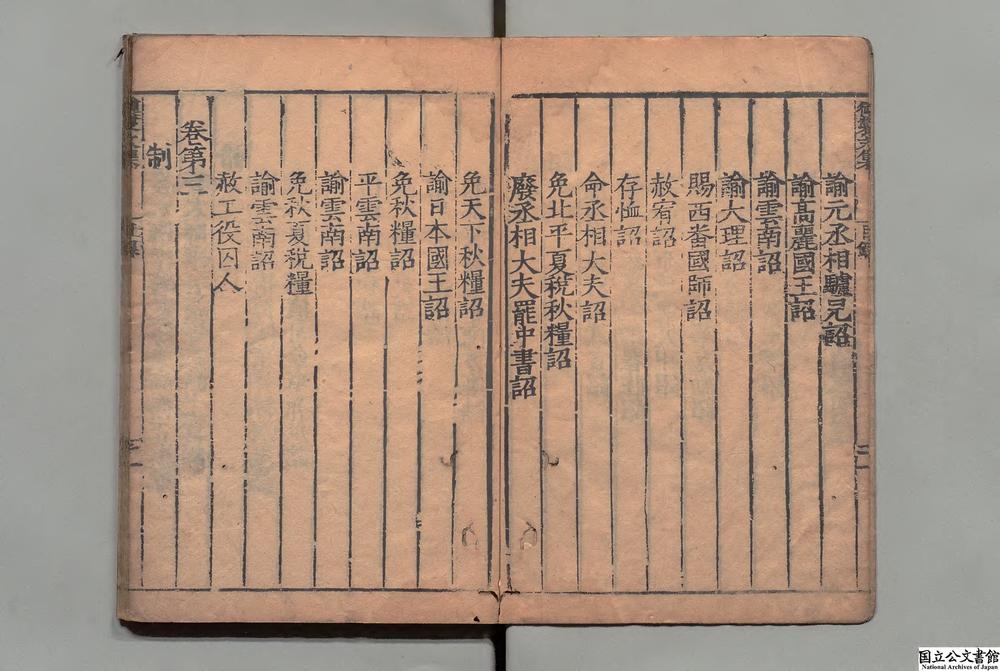 諭元丞相驢兒詔
諭高麗國王詔
諭雲南詔
諭大理詔
賜西番國師詔
赦宥詔
存恤詔
命丞相大夫詔
免北平夏稅秋糧詔
廢丞相大夫罷中書詔
免天下秋糧詔
諭日本國王詔
免秋糧詔
平雲南詔
諭雲南詔
免秋夏稅糧
諭雲南詔
赦工役囚人
卷第三
制
国立公文書館
National Archives of Japan